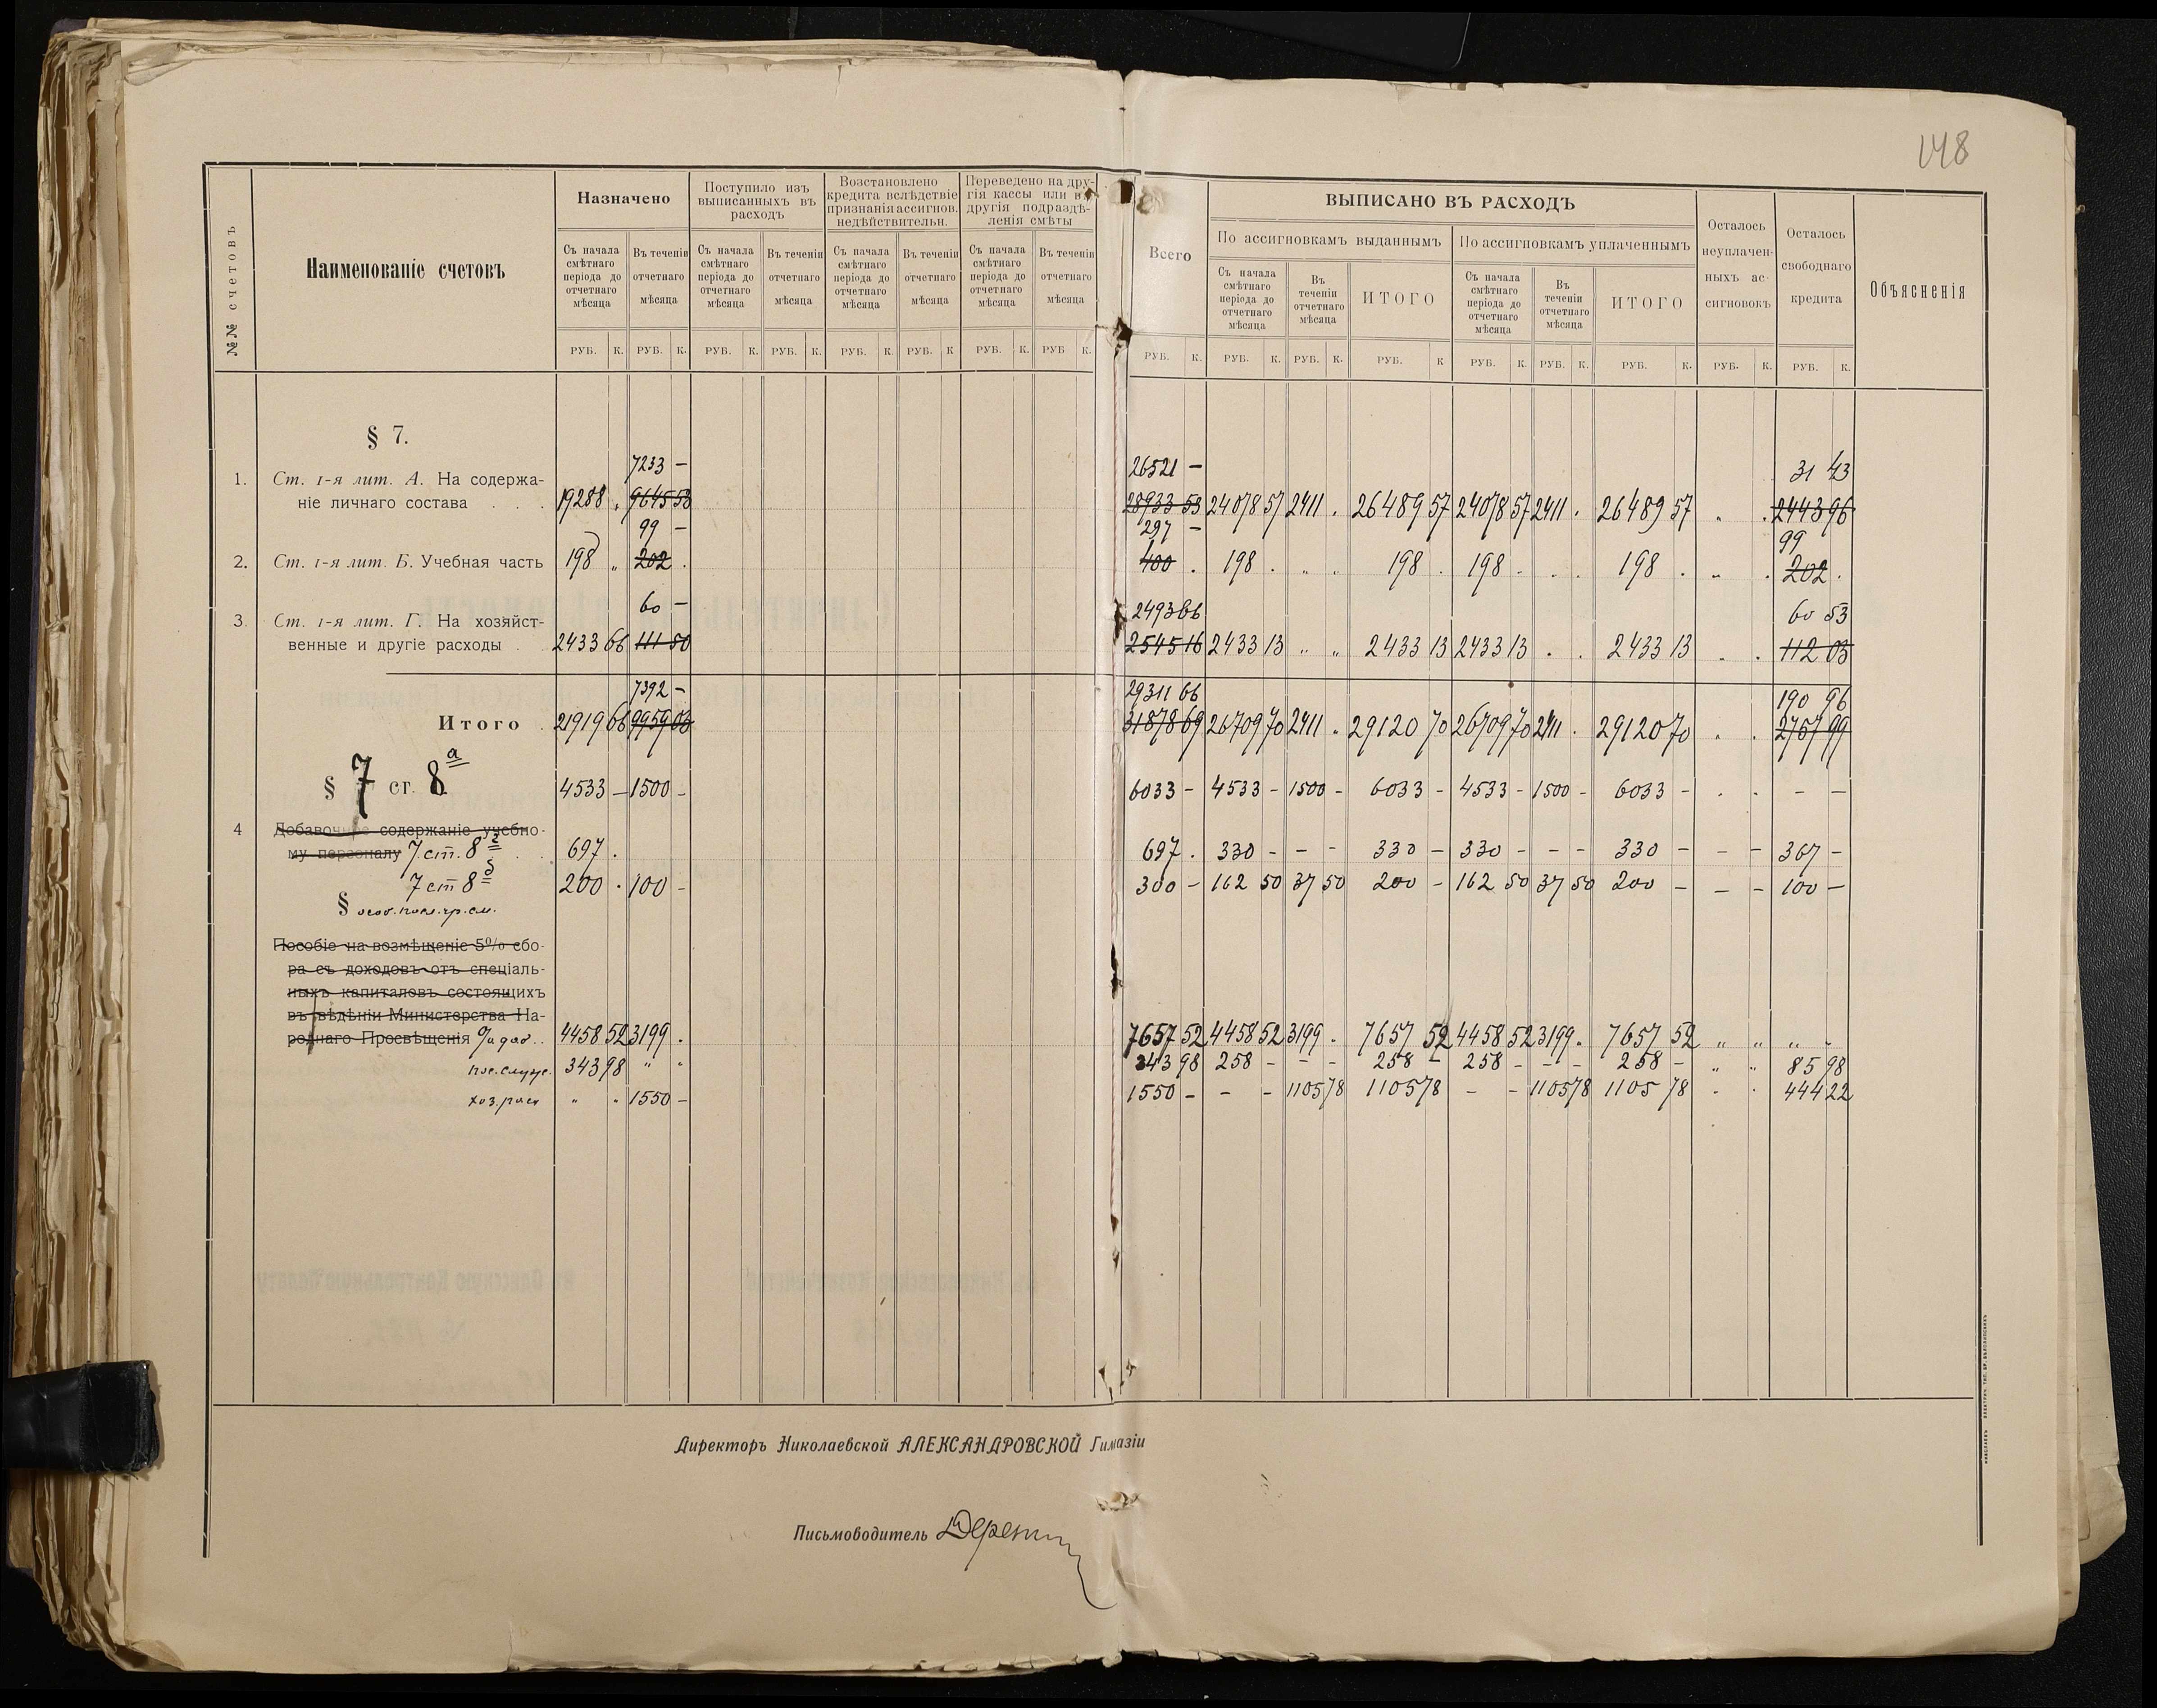 148
№№ счетовъ
Наименованіе счетовъ
Назначено
Поступило изъ
выписанныхъ въ
расходъ
Возстановлено
кредита вслѣдствіе
признанія ассигнов.
недѣйствительн.
Переведено на дру-
гія кассы или въ
другія подраздѣ-
ленія смѣты
Всего
ВЫПИСАНО ВЪ РАСХОДЪ
По ассигновкамъ выданнымъ
По ассигновкамъ уплаченнымъ
Осталось
неуплачен-
ныхъ ас-
сигновокъ
Осталось
свободнаго
кредита
Объясненія
Съ начала
смѣтнаго
періода до
отчетнаго
мѣсяца
Въ теченіи
отчетнаго
мѣсяца
Съ начала
смѣтнаго
періода до
отчетнаго
мѣсяца
Въ теченіи
отчетнаго
мѣсяца
Съ начала
смѣтнаго
періода до
отчетнаго
мѣсяца
Въ теченіи
отчетнаго
мѣсяца
Съ начала
смѣтнаго
періода до
отчетнаго
мѣсяца
Въ теченіи
отчетнаго
мѣсяца
Съ начала
смѣтнаго
періода до
отчетнаго
мѣсяца
Въ
теченіи
отчетнаго
мѣсяца
ИТОГО
Съ начала
смѣтнаго
періода до
отчетнаго
мѣсяца
Въ
теченіи
отчетнаго
мѣсяца
ИТОГО
РУБ. К. РУБ. К. РУБ. К. РУБ. К. РУБ. К. РУБ. К РУБ. К. РУБ К. РУБ. К. РУБ. К. РУБ. К. РУБ. К РУБ. К. РУБ. К. РУБ. К. РУБ. К. РУБ. К.
§ 7.
7233 – 26521 – 31 43
1. Ст. 1-я лит. А. На содержа-
ніе личнаго состава . . . 19288 „ 9645 53 28933 53 24078 57 2411 . 26489 57 24078 57 2411 . 26489 57 „ . 2443 96
99 – 297 – 99
2. Ст. 1-я лит. Б. Учебная часть 198 „ 202 . 400 . 198 . „ „ 198 . 198 . . . 198 . „ . 202 .
60 – 2493 66 60 53
3. Ст. 1-я лит. Г. На хозяйст-
венные и другіе расходы . 2433 66 111 50 2545 16 2433 13 „ „ 2433 13 2433 13 . . 2433 13 . . 112 03
7392 – 29311 66 190 96
Итого . 21919 66 9959 03 31878 69 26709 70 2411 . 29120 70 26709 70 2411 . 29120 70 . . 2757 99
§ 7 ст. 8а 4533 – 1500 – 6033 – 4533 – 1500 – 6033 – 4533 – 1500 – 6033 – . . – –
4 Добавочное содержаніе учебно-
му персоналу 7 ст. 8г . . 697 . 697 . 330 – – – 330 – 330 – – – 330 – – – 367 –
7 ст 8д 200 . 100 – 300 – 162 50 37 50 200 – 162 50 37 50 200 – – – 100 –
§
Пособіе на возмѣщеніе 5% сбо-
ра съ доходовъ отъ спеціаль-
ныхъ капиталовъ состоящихъ
въ вѣдѣніи Министерства На-
роднаго Просвѣщенія 4458 52 3199 . 7657 52 4458 52 3199 . 7657 52 4458 52 3199 . 7657 52 „ „ „ „
343 98 „ „ 343 98 258 – – – 258 – 258 – – – 258 – „ „ 85 98
хоз. расх „ „ 1550 – 1550 – – – 1105 78 1105 78 – – 1105 78 1105 78 . . 444 22
Директоръ Николаевской АЛЕКСАНДРОВСКОЙ Гимназіи
Письмоводитель